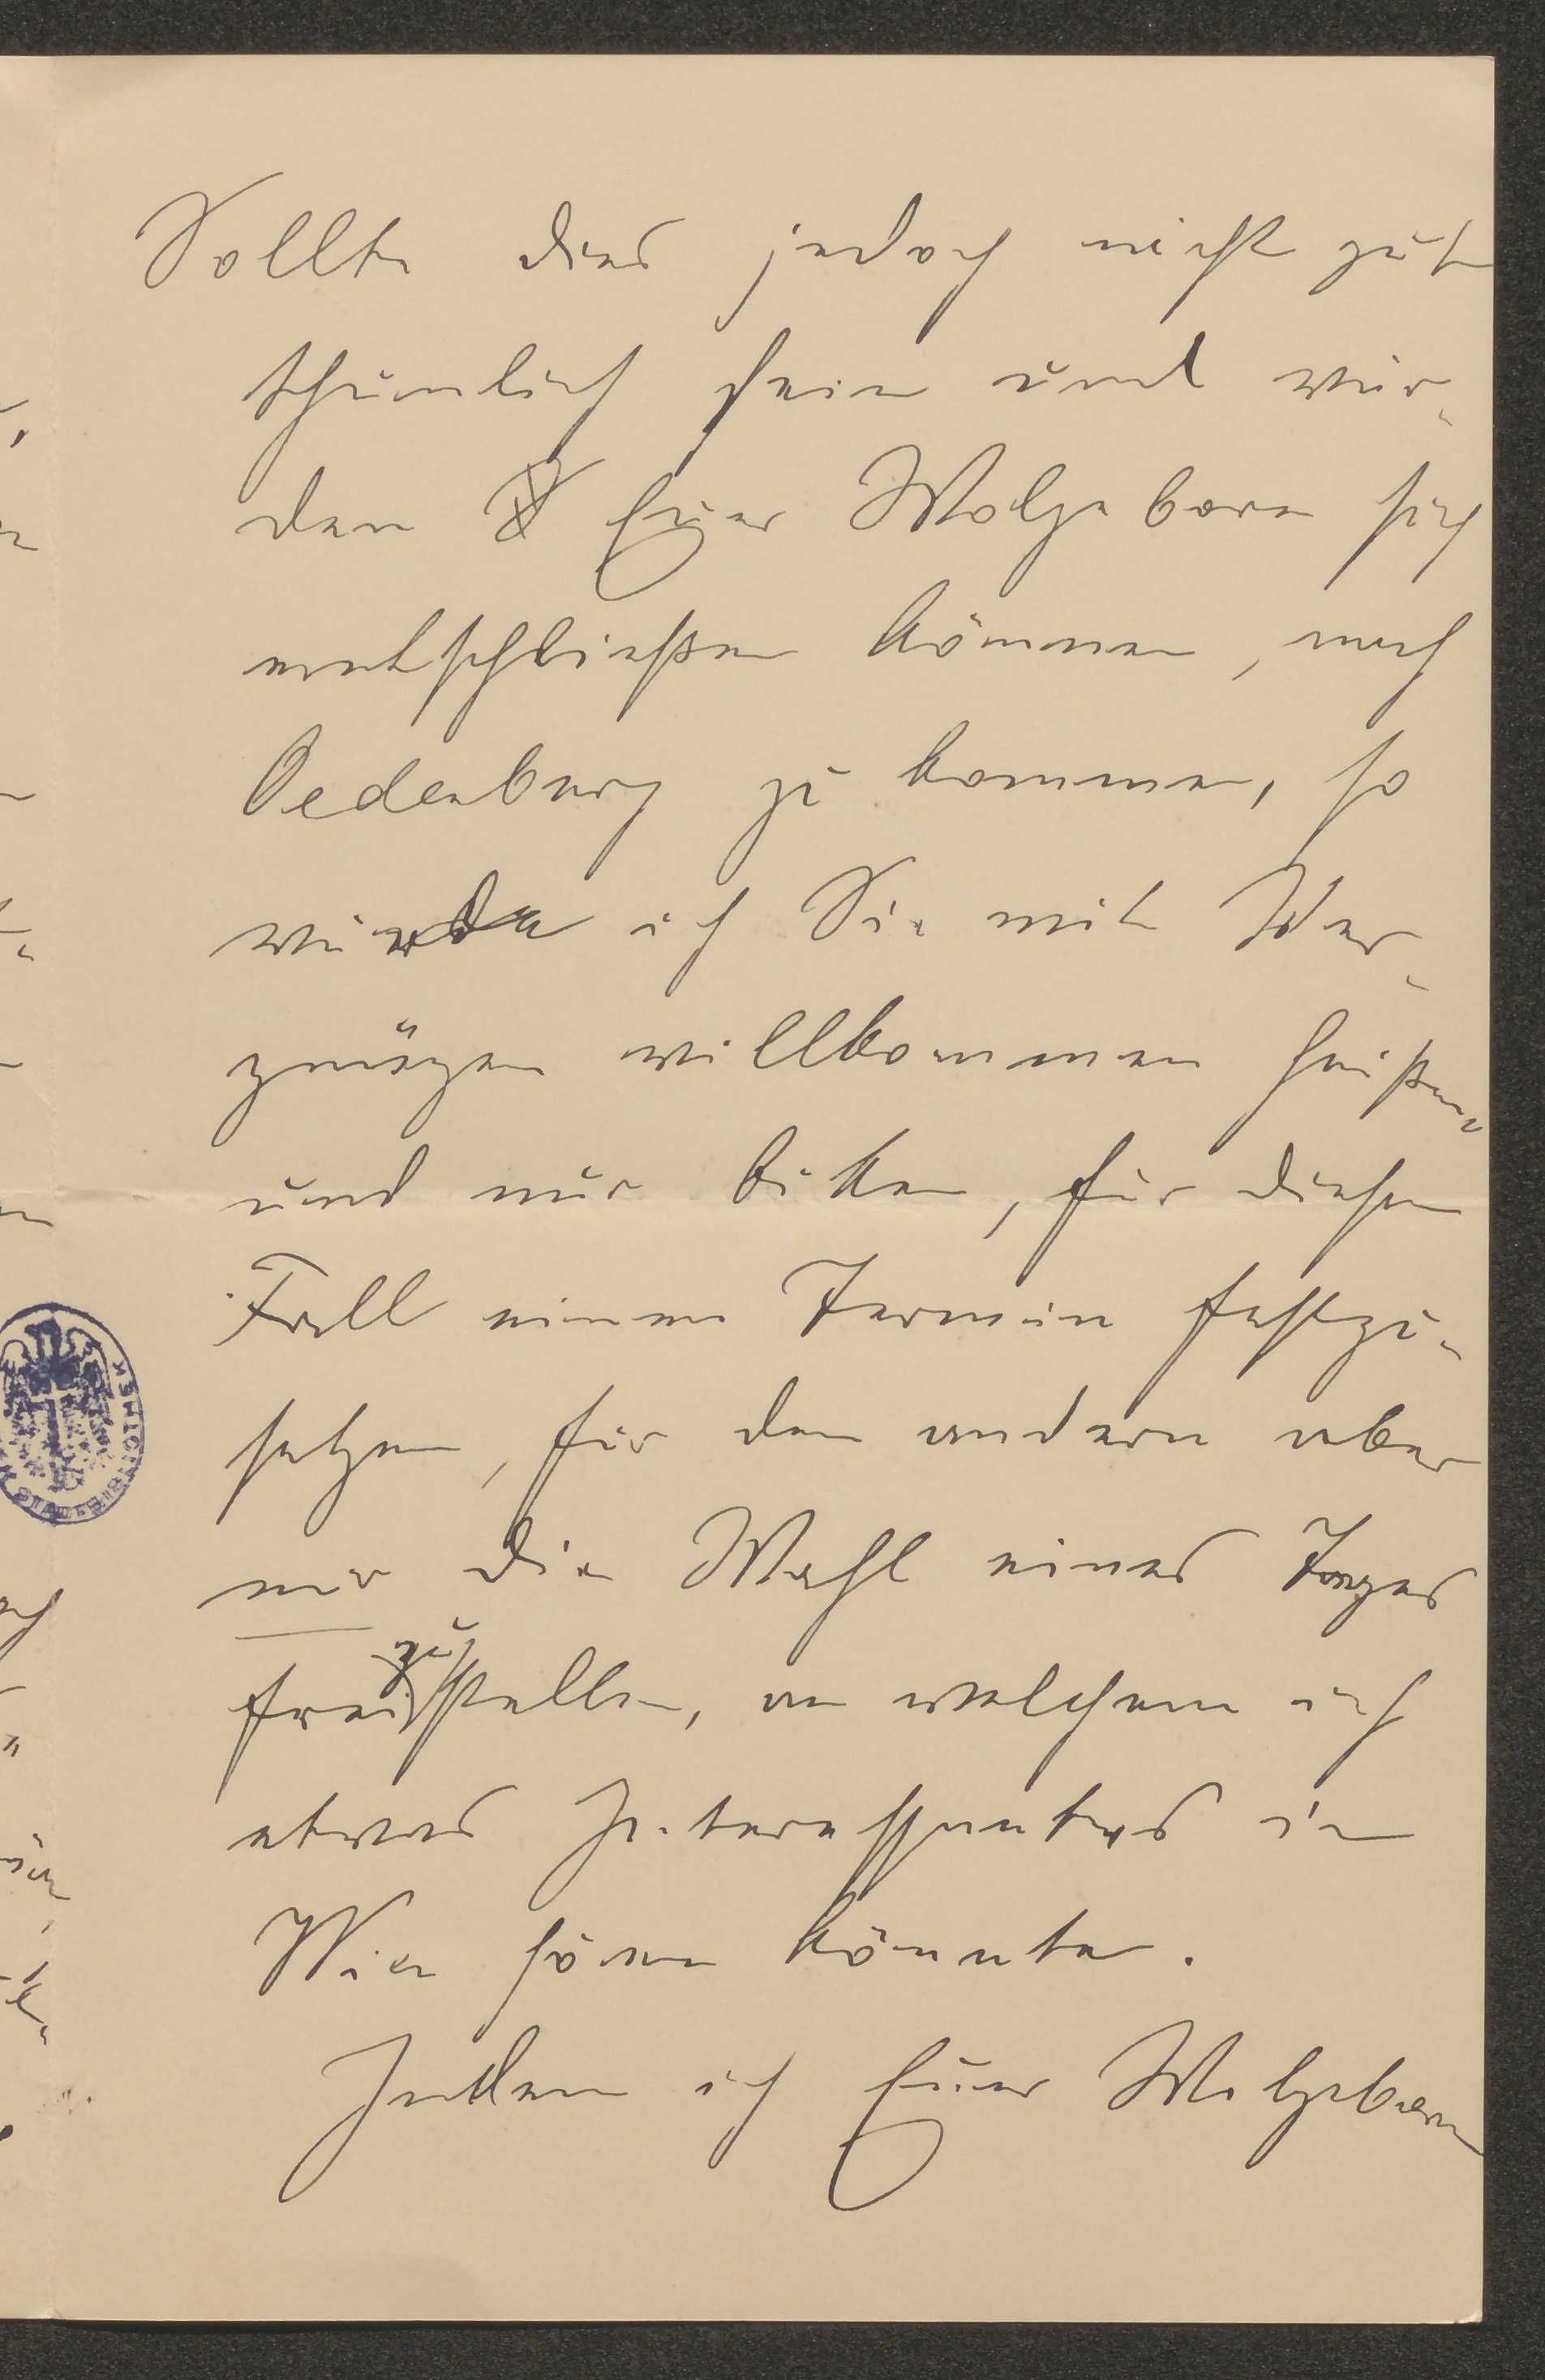 Sollte dies jedoch nicht gut
thunlich sein und wür-
den Euer Wolgeboren sich
entschließen können, nach
Oedenburg zu kommen, so
würde ich Sie mit Ver-
gnügen willkommen heißen
und nur bitten, für diesen
Fall einen Termin festzu-
setzen, für den andern aber
mir die Wahl eines Tages
freizustellen, an welchem ich
etwas Interessantes in
Wien hören könnte.
Indem ich Euer Wolgeboren